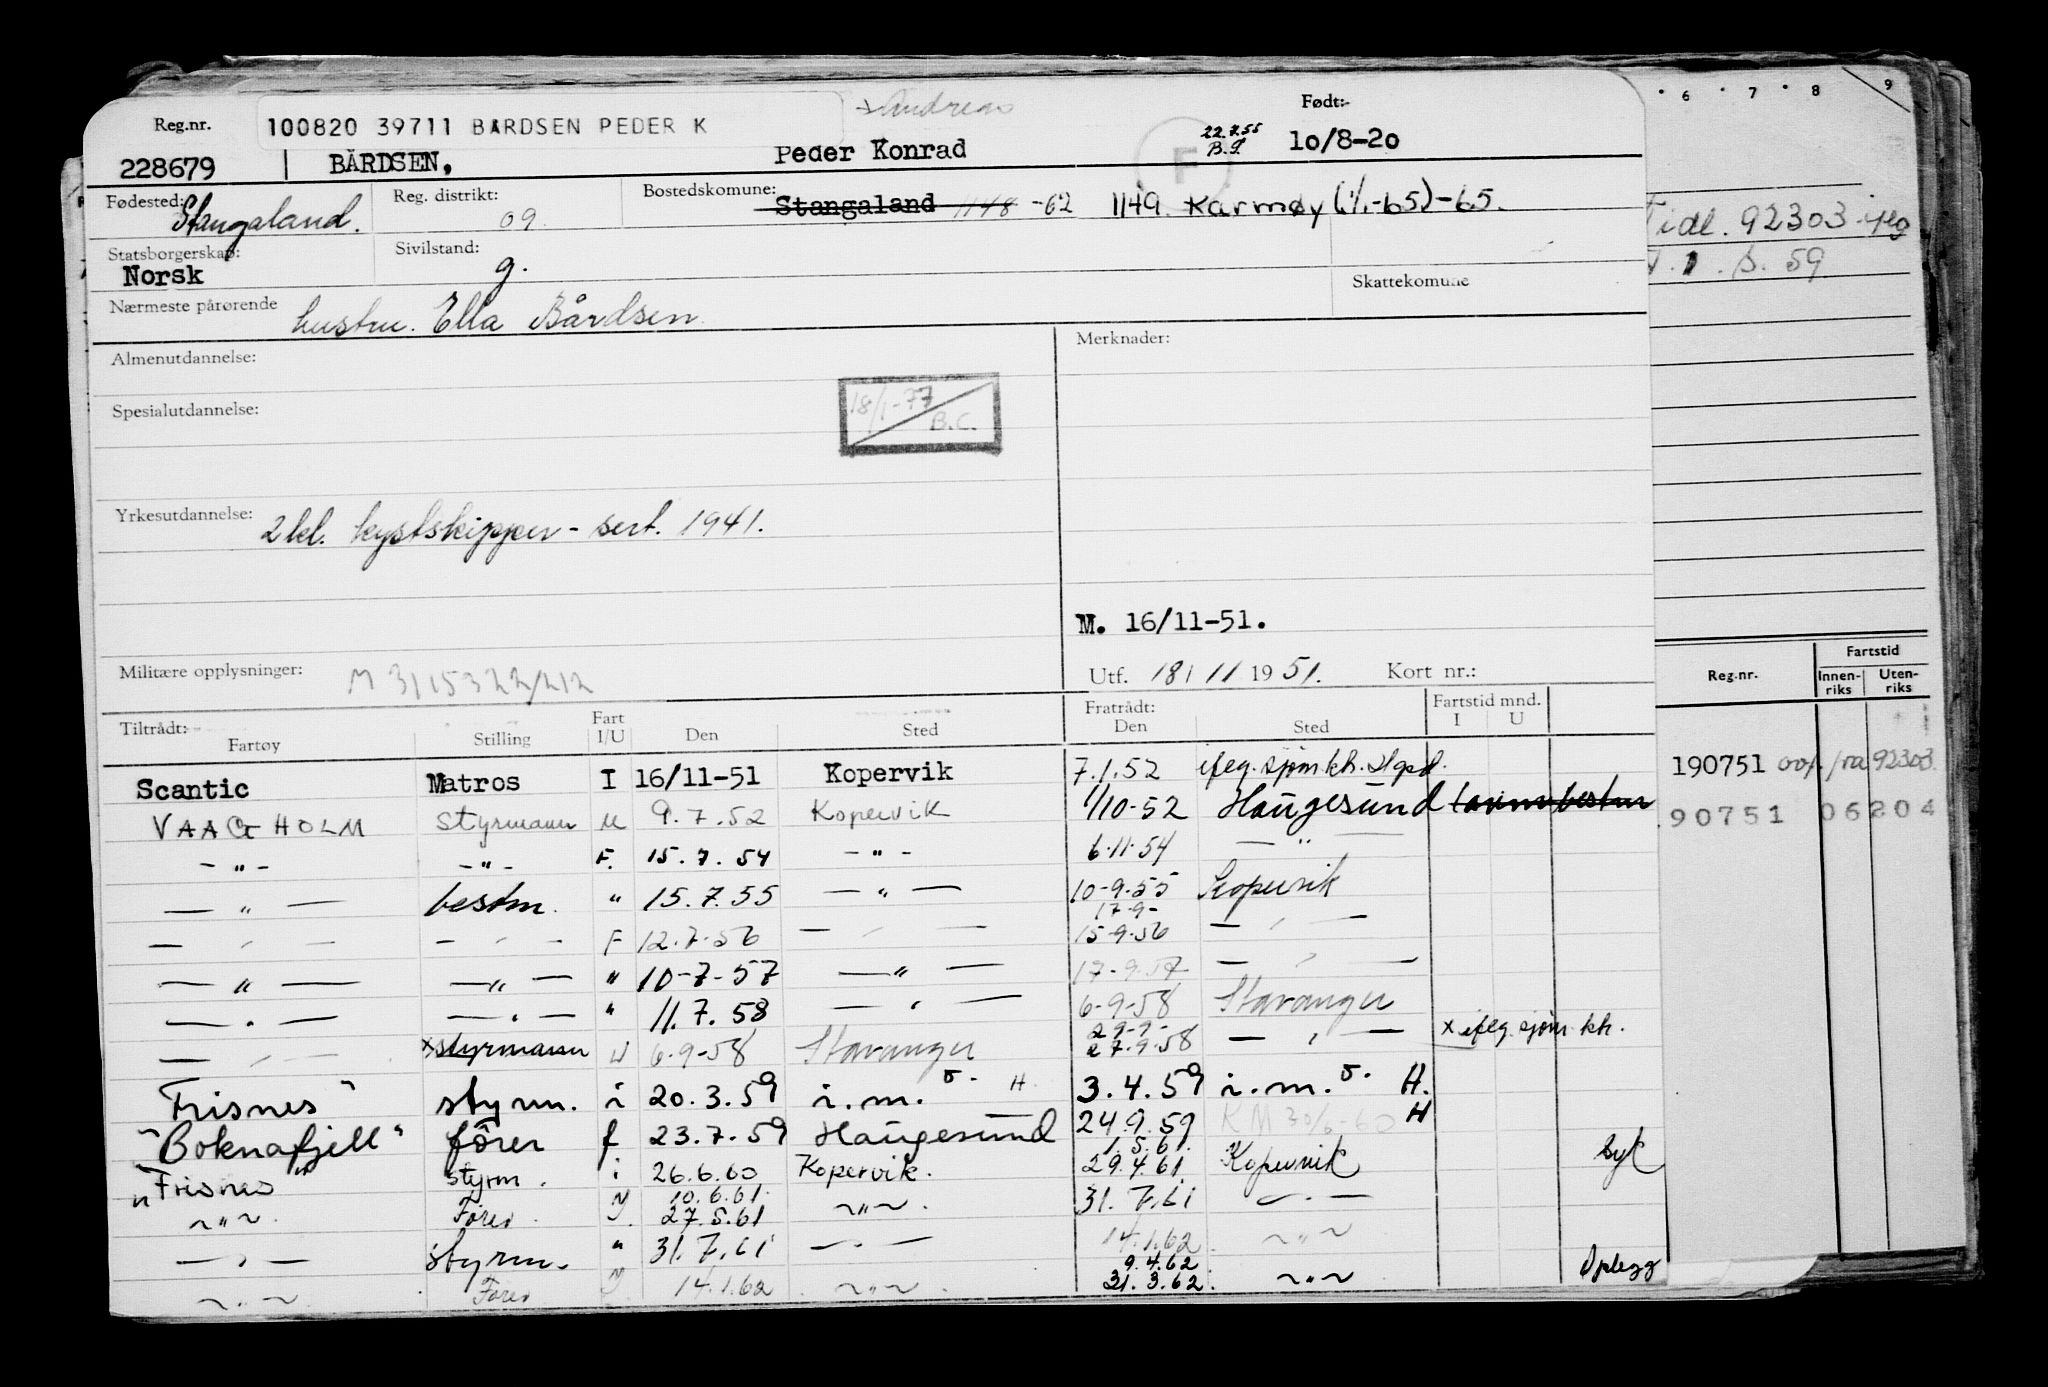 6 · 7 · 8 9
+ Andreas Født:-
Reg.nr. 100820 39711 BARDSEN PEDER K
228679 BÅRDSEN, Peder Konrad F 22.7.55 B.J. 10/8-20
Fødested: Stangaland. Reg. distrikt: 09. Bostedskomune: Stangaland 1148 -62 1149. Karmøy (1/1-65)-65.
Tidl. 92303 ifeg
Statsborgerskap: Norsk Sivilstand: g.
59
Nærmeste pårørende hustru. Ella Bårdsen. Skattekomune
Almenutdannelse: Merknader:
Spesialutdannelse: 18/1-77 B.C.
Yrkesutdannelse: 2 kl. kystskipper - sert. 1941.
M. 16/11-51.
Militære opplysninger: M 3115322/212 Utf. 18/ 11 19 51. Kort nr.:
Reg.nr. Fartstid
Innen-riks Uten-riks
Tiltrådt: Fratrådt: Fartstid mnd.
Fartøy Stilling Fart I/U Den Sted Den Sted I U
Scantic Matros I 16/11-51 Kopervik 7.1.52 ifeg. sjøm.kh. Hgsd.
190751 92303
VAAGHOLM styrmann U 9.7.52 Kopervik 1/10-52 Haugesund
90751 06204
- " - - " - F. 15.7.54 - " - 6.11.54 — " —
— " — bestm. " 15.7.55 — " — 10-9.55 Kopervik
17-9-
— " — — " — F 12.7.56 — " — 15-9.56 — " —
— " — — " — " 10-7-57 — " — 17-9.57 — " —
— " — — " — " 11.7.58 — " — 6-9-58 Stavanger
29-9-
— " — x styrmann U 6-9-58 Stavanger 27.9.58 — " — x ifeg. sjøm. kh.
"Frisnes" styrm. i 20.3.59 i.m.o. H. 3.4.59 i.m.o. H.
"Boknafjell" fører f 23.7.59 Haugesund 24.9.59 KM 30/6-60 H
1.5.61.
"Frisnes" styrm. i 26.6.60 Kopervik. 29.4.61 Kopervik syk
10.6.61.
~ " ~ Fører. 27.5.61 ~ " ~ 31.7.61 — " —
— " — styrm. " 31.7.61 — " — 14.1.62. ~ " ~
9.4.62.
~ " ~ Fører 14.1.62 ~ " ~ 31.3.62. ~ " ~ Oplegg